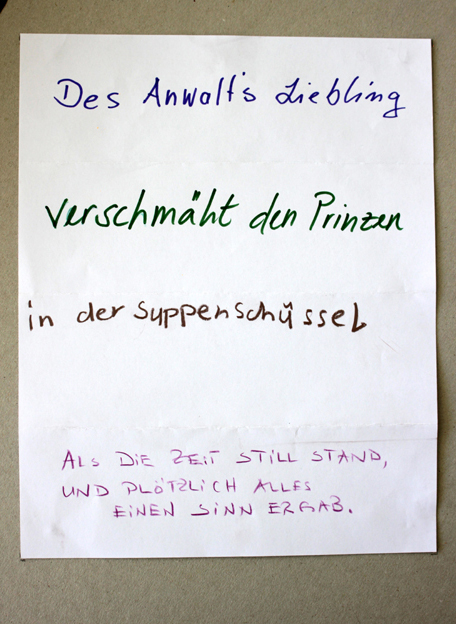 Des Anwalt's Liebling
verschmäht den Prinzen
in der Suppenschüssel
ALS DIE ZEIT STILL STAND,
UND PLÖTZLICH ALLES
EINEN SINN ERGAB.